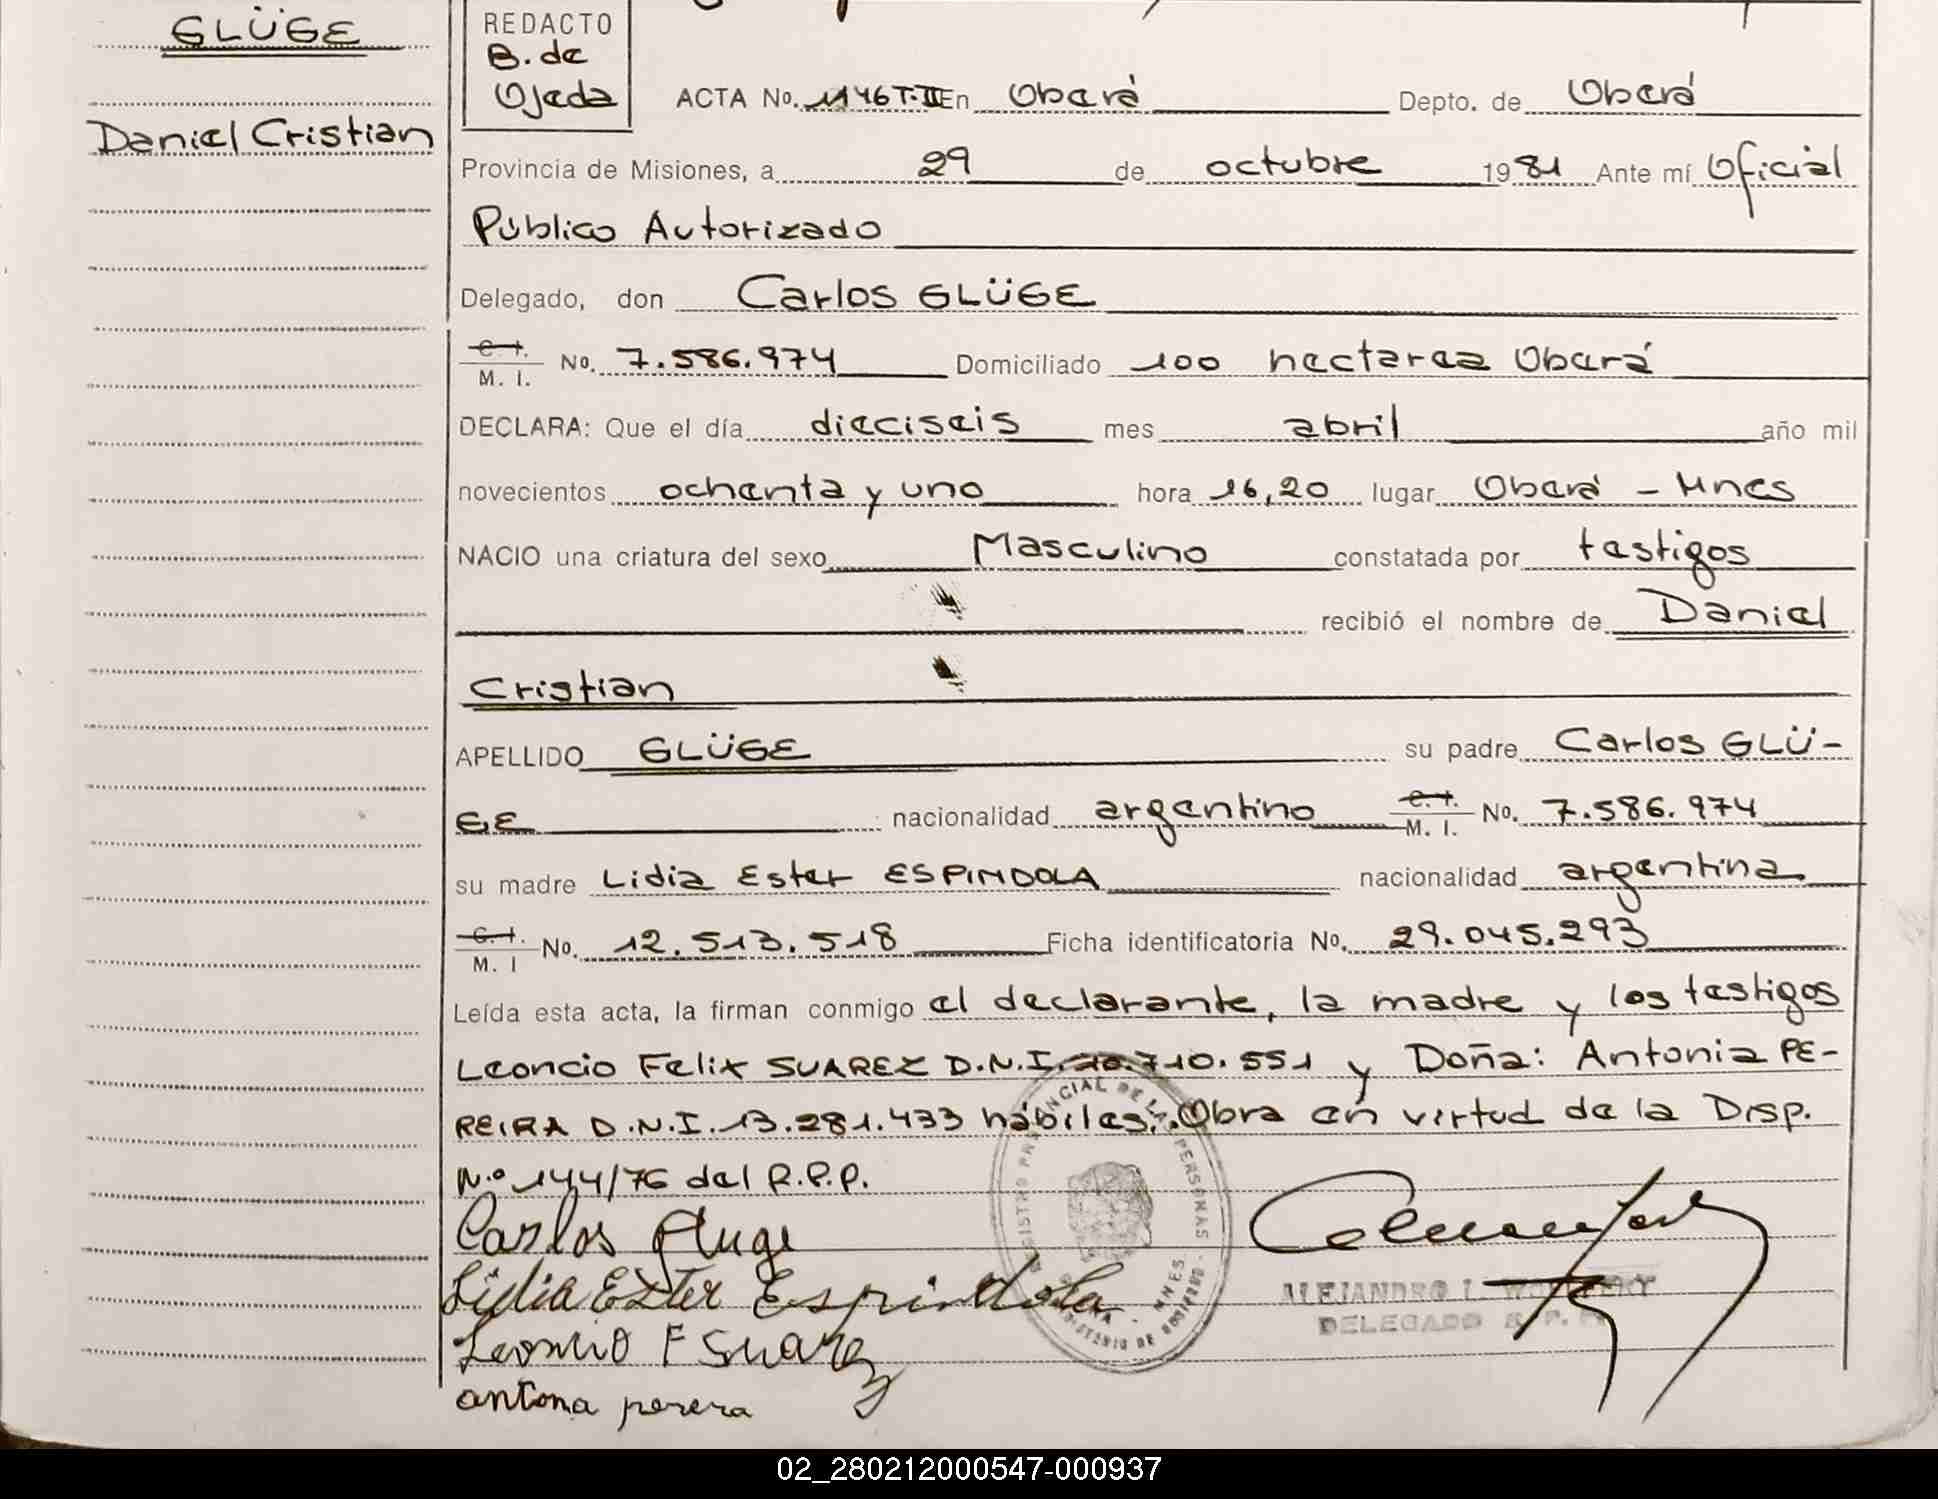 GLÜGE
Daniel Cristian
REDACTO
B. de
Ojeda
ACTA No. 1146 T.II En Oberá Depto. de Oberá
Provincia de Misiones, a 29 de octubre 1981 Ante mí Oficial
Público Autorizado
Delegado, don Carlos GLÜGE
C. I. M. I. No. 7.586.974 Domiciliado 100 hectarea Oberá
DECLARA: Que el día dieciseis mes abril año mil
novecientos ochenta y uno hora 16,20 lugar Oberá - Mnes
NACIO una criatura del sexo Masculino constatada por testigos
recibió el nombre de Daniel
Cristian
APELLIDO GLÜGE su padre Carlos GLÜ-
GE nacionalidad argentino C. I. M. I. No. 7.586.974
su madre Lidia Ester ESPINDOLA nacionalidad argentina
C. I. M. I No. 12.513.518 Ficha identificatoria No. 29.045.293
Leída esta acta, la firman conmigo el declarante, la madre y los testigos
Leoncio Felix SUAREZ D.N.I. 10.710.551 y Doña: Antonia PE-
REIRA D.N.I. 13.281.433 hábiles. Obra en virtud de la Disp.
N.º 144/76 del R.P.P.
Carlos Gluge
Lidia Ester Espindola
Leoncio F Suarez
antona perera
REGISTRO PROVINCIAL DE LAS PERSONAS
MINISTERIO DE GOBIERNO MNES
ALEJANDRO L.
DELEGADO R. P. P.
02_280212000547-000937